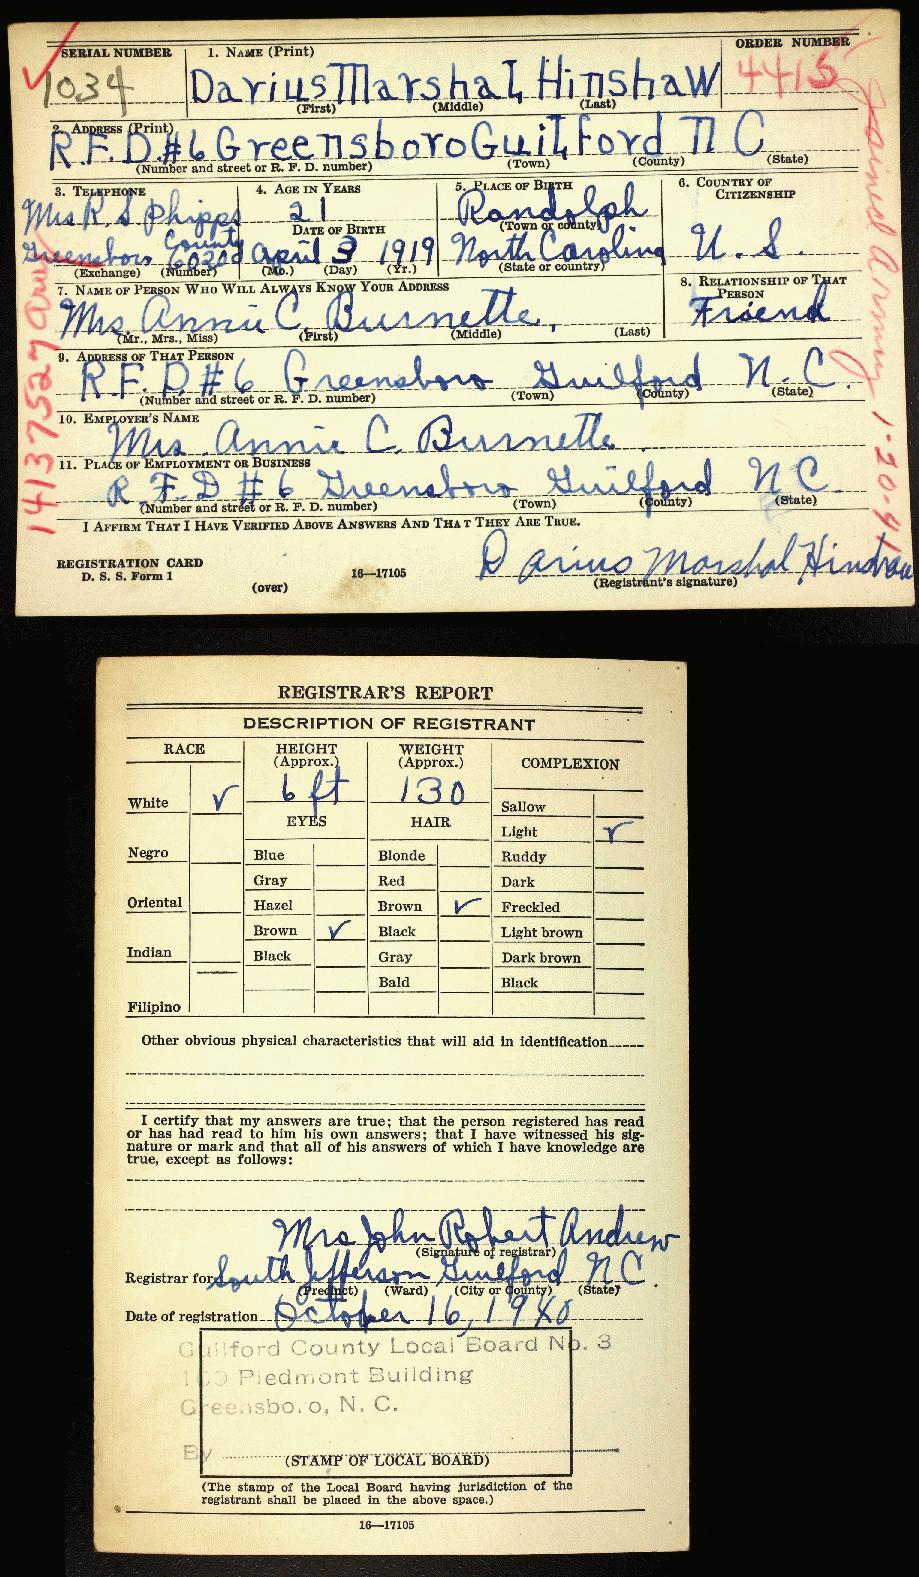 SERIAL NUMBER 1. NAME (Print) ORDER NUMBER
1034 Darius Marshal Hinshaw 4415
(First) (Middle) (Last)
2. ADDRESS (Print)
R.F.D #6 Greensboro Guilford N C
(Number and street or R. F. D. number) (Town) (County) (State)
3. TELEPHONE 4. AGE IN YEARS 5. PLACE OF BIRTH 6. COUNTRY OF CITIZENSHIP
Mrs R. S Phipps 21 Randolph
DATE OF BIRTH (Town or county)
Greensboro County 6020 April 3 1919 North Carolina U. S.
(Exchange) (Number) (Mo.) (Day) (Yr.) (State or country)
7. NAME OF PERSON WHO WILL ALWAYS KNOW YOUR ADDRESS 8. RELATIONSHIP OF THAT PERSON
Mrs. Annie C. Burnette, Friend
(Mr., Mrs., Miss) (First) (Middle) (Last)
9. ADDRESS OF THAT PERSON
R.F.D #6 Greensboro Guilford N.C.
(Number and street or R. F. D. number) (Town) (County) (State)
10. EMPLOYER'S NAME
Mrs. Annie C. Burnette
11. PLACE OF EMPLOYMENT OR BUSINESS
R.F.D #6 Greensboro Guilford N C.
(Number and street or R. F. D. number) (Town) (County) (State)
I AFFIRM THAT I HAVE VERIFIED ABOVE ANSWERS AND THAT THEY ARE TRUE.
REGISTRATION CARD
D. S. S. Form 1 16—17105 Darius Marshal Hinshaw
(over) (Registrant's signature)
14137527
Joined Army 1-20-41
REGISTRAR'S REPORT
DESCRIPTION OF REGISTRANT
RACE HEIGHT (Approx.) WEIGHT (Approx.) COMPLEXION
White ✓ 6 ft 130 Sallow
EYES HAIR Light ✓
Negro Blue Blonde Ruddy
Gray Red Dark
Oriental Hazel Brown ✓ Freckled
Brown ✓ Black Light brown
Indian Black Gray Dark brown
Bald Black
Filipino
Other obvious physical characteristics that will aid in identification
I certify that my answers are true; that the person registered has read
or has had read to him his own answers; that I have witnessed his sig-
nature or mark and that all of his answers of which I have knowledge are
true, except as follows:
Mrs John Robert Andrew
(Signature of registrar)
Registrar for South Jefferson Guilford N C.
(Precinct) (Ward) (City or County) (State)
Date of registration October 16, 1940
Guilford County Local Board No. 3
Piedmont Building
Greensboro, N. C.
By
(STAMP OF LOCAL BOARD)
(The stamp of the Local Board having jurisdiction of the
registrant shall be placed in the above space.)
16—17105